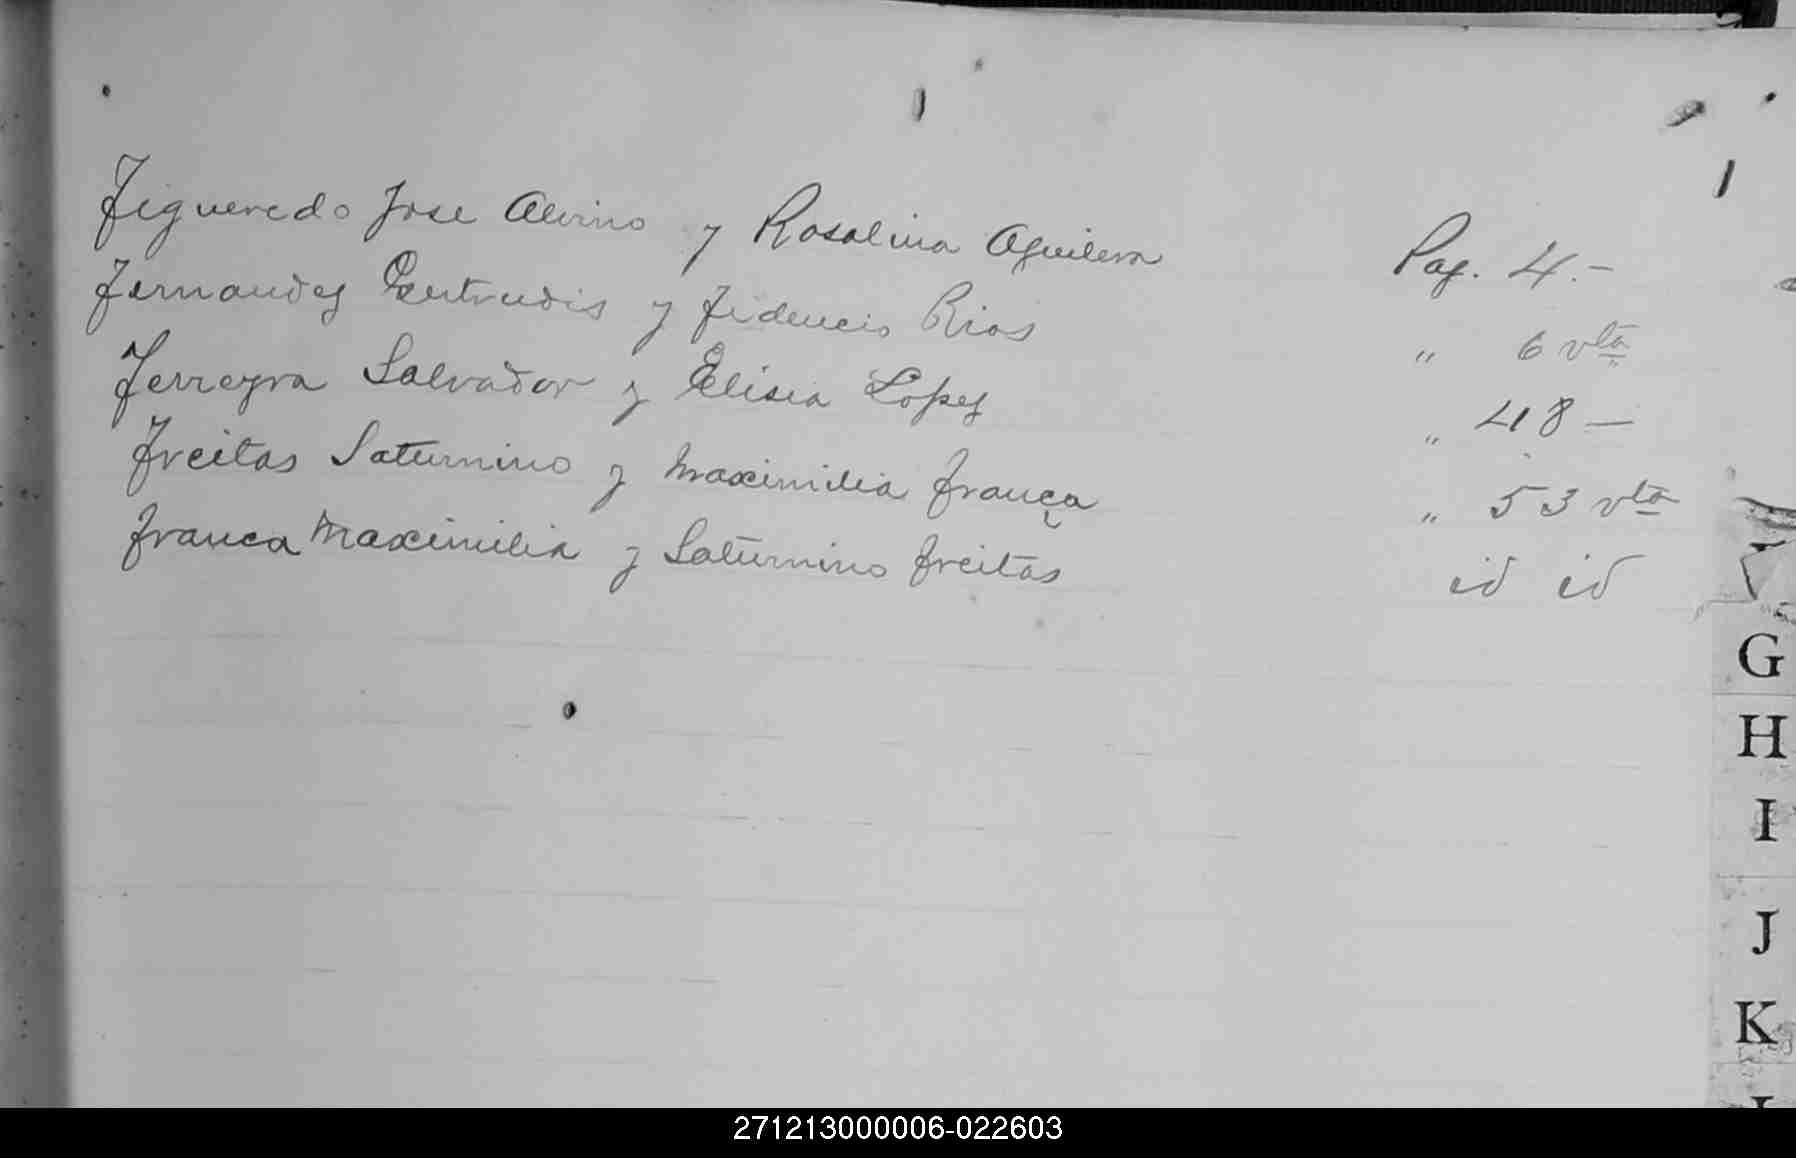 Figueredo Jose Alvino y Rosalina Aguilera Pag. 4.-
Fernandez Gertrudis y Fidencio Rios " 6 vta
Ferreyra Salvador y Elisea Lopez " 48 —
Freitas Saturnino y Maximilia França " 53 vta
Franca Maximilia y Saturnino Freitas id id
G
H
I
J
K
271213000006-022603